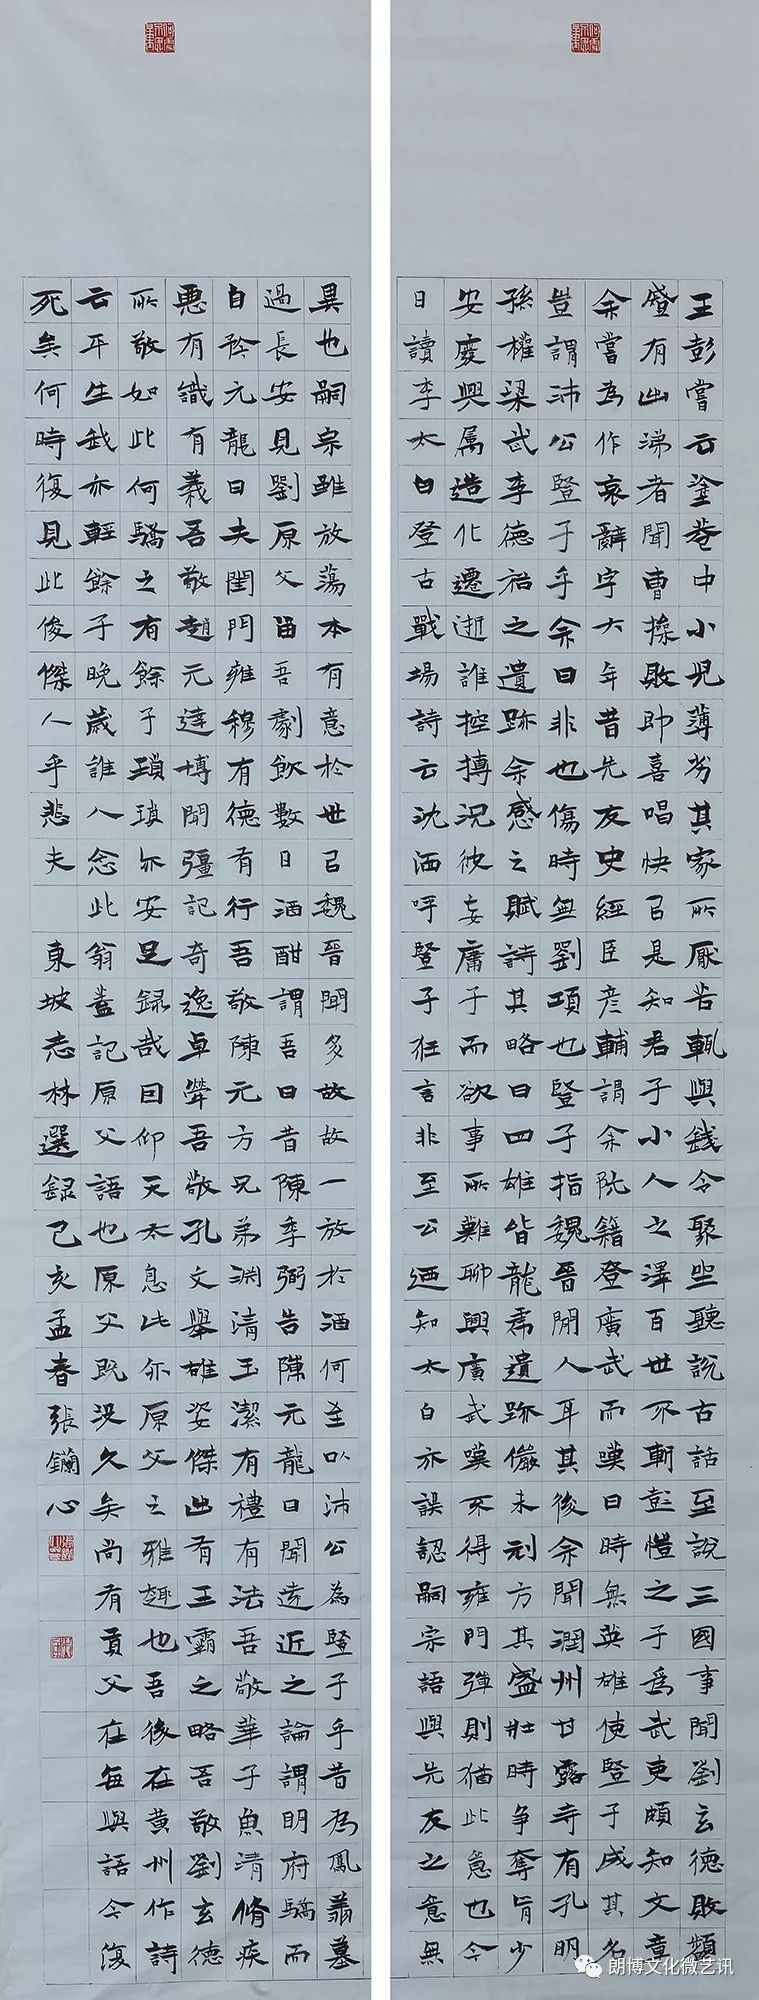 王彭嘗云塗巷中小兒薄劣其家所厭苦輒與錢令聚坐聽說古話至說三國事聞劉玄德敗顰
蹙有出涕者聞曹操敗即喜唱快㠯是知君子小人之澤百世不斬彭愷之子爲武吏頗知文章
余嘗為作哀辭字大年昔先友史經臣彥輔謂余阮籍登廣武而嘆曰時無英雄使豎子成其名
豈謂沛公豎子乎余曰非也傷時無劉項也豎子指魏晉間人耳其後余聞潤州甘露寺有孔明
孫權梁武李德裕之遺跡余感之賦詩其略曰四雄皆龍虎遺跡儼未刓方其盛壯時爭奪肯少
安廢興屬造化遷逝誰控摶況彼妄庸子而欲事所難聊興廣武嘆不得雍門彈則猶此意也今
日讀李太白登古戰場詩云沈湎呼豎子狂言非至公迺知太白亦誤認嗣宗語與先友之意無
異也嗣宗雖放蕩本有意於世㠯魏晉間多故故一放於酒何至以沛公為豎子乎昔為鳳翔幕
過長安見劉原父留吾劇飲數日酒酣謂吾曰昔陳季弼告陳元龍曰聞遠近之論謂明府驕而
自矜元龍曰夫閨門雍穆有德有行吾敬陳元方兄弟淵清玉潔有禮有法吾敬華子魚清脩疾
惡有識有義吾敬趙元達博聞彊記奇逸卓犖吾敬孔文舉雄姿傑出有王霸之略吾敬劉玄德
所敬如此何驕之有餘子瑣瑣亦安足錄哉因仰天太息此亦原父之雅趣也吾後在黃州作詩
云平生我亦輕餘子晚歲誰人念此翁蓋記原父語也原父既没久矣尚有貢父在每與語今復
死矣何時復見此俊傑人乎悲夫 東坡志林選錄己亥孟春張鑭心
朗博文化微艺讯